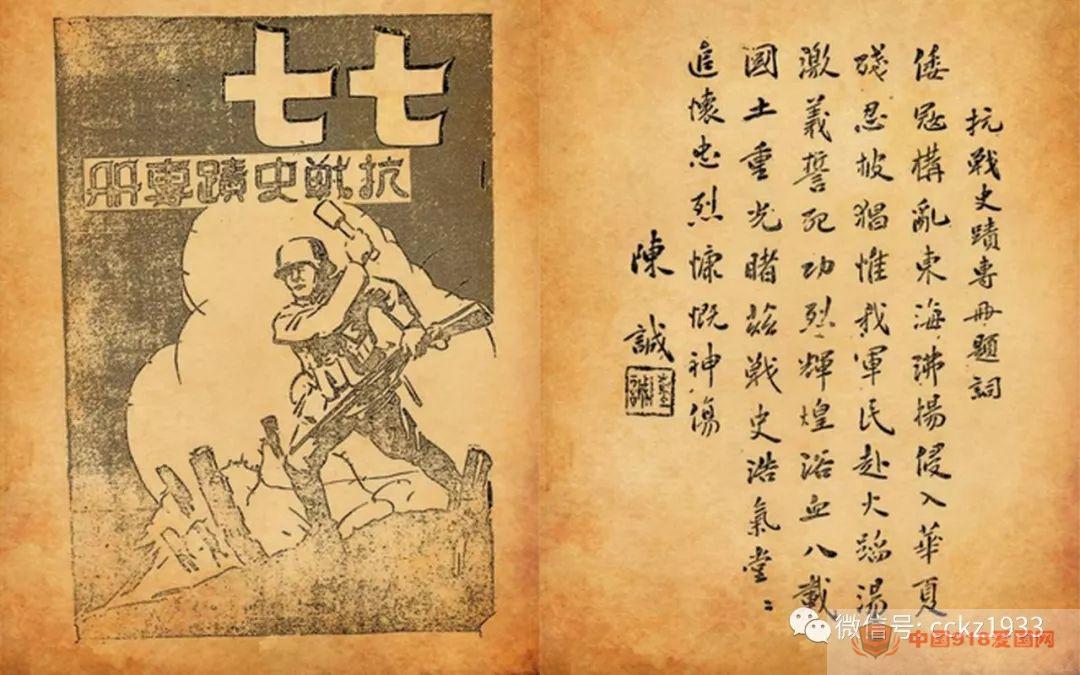 七七
抗戰史蹟專冊
抗戰史蹟專冊題詞
倭寇構亂東海沸揚侵入華夏
殘忍披猖惟我軍民赴火蹈湯
激義誓死功烈輝煌浴血八載
國土重光睹茲戰史浩氣堂：
追懷忠烈慷慨神傷
陳誠
微信号: cckz1933
中国918爱国网